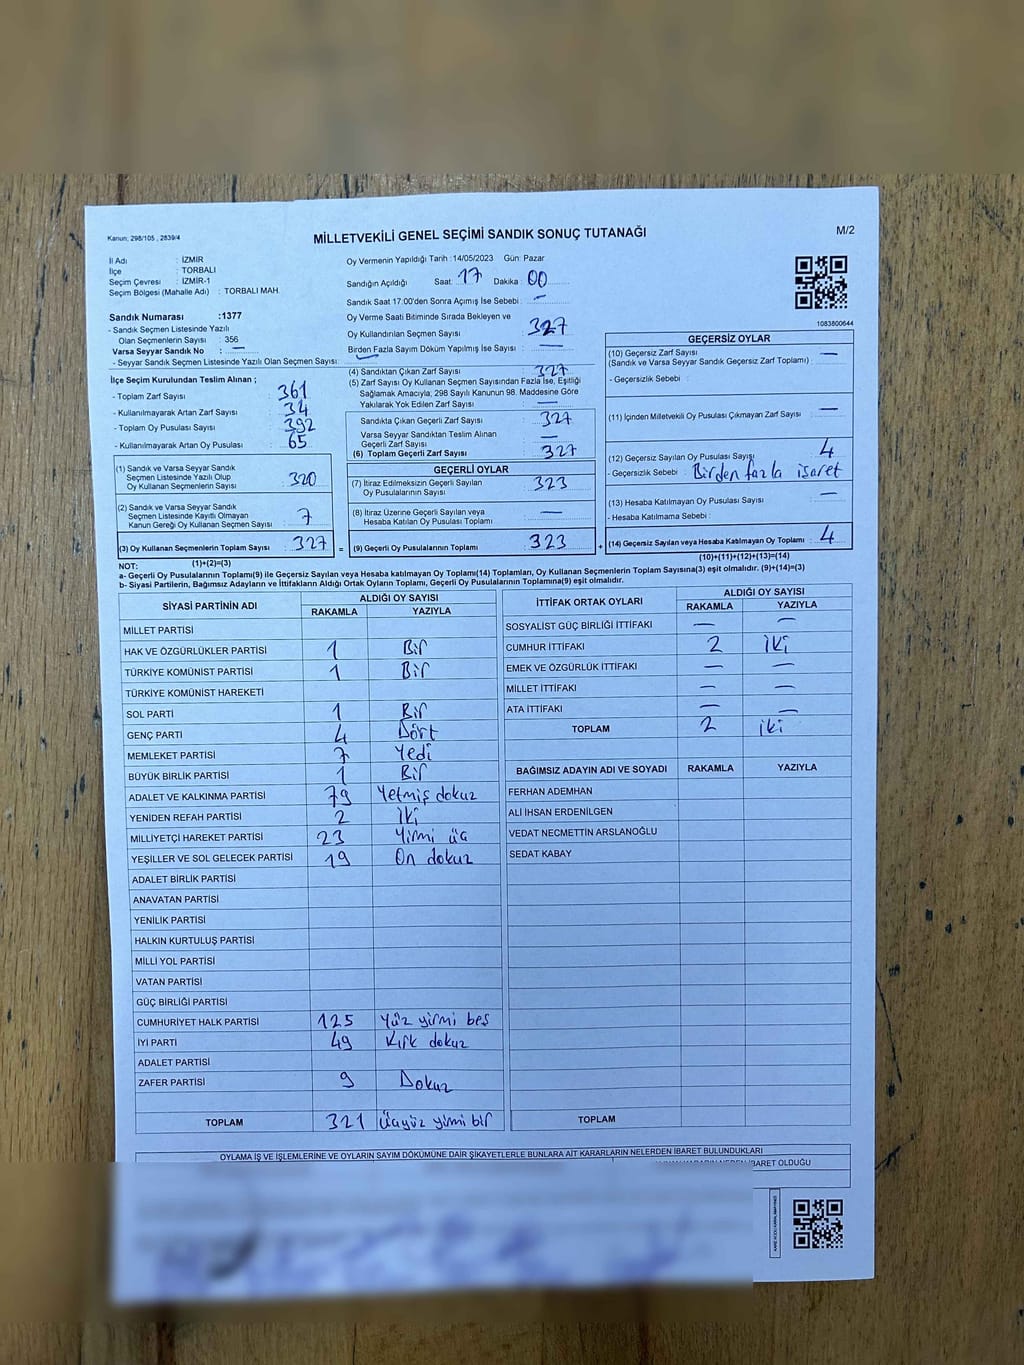 Kanun; 298/105 , 2839/4
MİLLETVEKİLİ GENEL SEÇİMİ SANDIK SONUÇ TUTANAĞI
M/2
İl Adı : İZMİR
İlçe : TORBALI
Seçim Çevresi : İZMİR-1
Seçim Bölgesi (Mahalle Adı) : TORBALI MAH.
Sandık Numarası :1377
- Sandık Seçmen Listesinde Yazılı
Olan Seçmenlerin Sayısı : 356
Varsa Seyyar Sandık No : —
- Seyyar Sandık Seçmen Listesinde Yazılı Olan Seçmen Sayısı:
Oy Vermenin Yapıldığı Tarih : 14/05/2023 Gün: Pazar
Sandığın Açıldığı Saat: 17 Dakika : 00
Sandık Saat 17:00'den Sonra Açımış İse Sebebi : —
Oy Verme Saati Bitiminde Sırada Bekleyen ve
Oy Kullandırılan Seçmen Sayısı : 327
Birden Fazla Sayım Döküm Yapılmış İse Sayısı : —
1083800644
İlçe Seçim Kurulundan Teslim Alınan ;
- Toplam Zarf Sayısı : 361
- Kullanılmayarak Artan Zarf Sayısı : 34
- Toplam Oy Pusulası Sayısı : 392
- Kullanılmayarak Artan Oy Pusulası : 65
(1) Sandık ve Varsa Seyyar Sandık
Seçmen Listesinde Yazılı Olup
Oy Kullanan Seçmenlerin Sayısı : 320
(2) Sandık ve Varsa Seyyar Sandık
Seçmen Listesinde Kayıtlı Olmayan
Kanun Gereği Oy Kullanan Seçmen Sayısı : 7
(3) Oy Kullanan Seçmenlerin Toplam Sayısı : 327
(1)+(2)=(3)
(4) Sandıktan Çıkan Zarf Sayısı : 327
(5) Zarf Sayısı Oy Kullanan Seçmen Sayısından Fazla İse, Eşitliği
Sağlamak Amacıyla; 298 Sayılı Kanunun 98. Maddesine Göre
Yakılarak Yok Edilen Zarf Sayısı : —
Sandıkta Çıkan Geçerli Zarf Sayısı : 327
Varsa Seyyar Sandıktan Teslim Alınan
Geçerli Zarf Sayısı : —
(6) Toplam Geçerli Zarf Sayısı : 327
GEÇERLİ OYLAR
(7) İtiraz Edilmeksizin Geçerli Sayılan
Oy Pusulalarının Sayısı : 323
(8) İtiraz Üzerine Geçerli Sayılan veya
Hesaba Katılan Oy Pusulası Toplamı : —
= (9) Geçerli Oy Pusulalarının Toplamı : 323
GEÇERSİZ OYLAR
(10) Geçersiz Zarf Sayısı : —
(Sandık ve Varsa Seyyar Sandık Geçersiz Zarf Toplamı) :
- Geçersizlik Sebebi :
(11) İçinden Milletvekili Oy Pusulası Çıkmayan Zarf Sayısı : —
(12) Geçersiz Sayılan Oy Pusulası Sayısı : 4
- Geçersizlik Sebebi : Birden fazla işaret
(13) Hesaba Katılmayan Oy Pusulası Sayısı : —
- Hesaba Katılmama Sebebi :
+ (14) Geçersiz Sayılan veya Hesaba Katılmayan Oy Toplamı : 4
(10)+(11)+(12)+(13)=(14)
NOT:
a- Geçerli Oy Pusulalarının Toplamı(9) ile Geçersiz Sayılan veya Hesaba katılmayan Oy Toplamı(14) Toplamları, Oy Kullanan Seçmenlerin Toplam Sayısına(3) eşit olmalıdır. (9)+(14)=(3)
b- Siyasi Partilerin, Bağımsız Adayların ve İttifakların Aldığı Ortak Oyların Toplamı, Geçerli Oy Pusulalarının Toplamına(9) eşit olmalıdır.
SİYASİ PARTİNİN ADI ALDIĞI OY SAYISI
RAKAMLA YAZIYLA
MİLLET PARTİSİ
HAK VE ÖZGÜRLÜKLER PARTİSİ 1 Bir
TÜRKİYE KOMÜNİST PARTİSİ 1 Bir
TÜRKİYE KOMÜNİST HAREKETİ
SOL PARTİ 1 Bir
GENÇ PARTİ 4 Dört
MEMLEKET PARTİSİ 7 Yedi
BÜYÜK BİRLİK PARTİSİ 1 Bir
ADALET VE KALKINMA PARTİSİ 79 Yetmiş dokuz
YENİDEN REFAH PARTİSİ 2 İki
MİLLİYETÇİ HAREKET PARTİSİ 23 Yirmi üç
YEŞİLLER VE SOL GELECEK PARTİSİ 19 On dokuz
ADALET BİRLİK PARTİSİ
ANAVATAN PARTİSİ
YENİLİK PARTİSİ
HALKIN KURTULUŞ PARTİSİ
MİLLİ YOL PARTİSİ
VATAN PARTİSİ
GÜÇ BİRLİĞİ PARTİSİ
CUMHURİYET HALK PARTİSİ 125 Yüz yirmi beş
İYİ PARTİ 49 Kırk dokuz
ADALET PARTİSİ
ZAFER PARTİSİ 9 Dokuz
TOPLAM 321 Üçyüz yimi bir
İTTİFAK ORTAK OYLARI ALDIĞI OY SAYISI
RAKAMLA YAZIYLA
SOSYALİST GÜÇ BİRLİĞİ İTTİFAKI — —
CUMHUR İTTİFAKI 2 iki
EMEK VE ÖZGÜRLÜK İTTİFAKI — —
MİLLET İTTİFAKI — —
ATA İTTİFAKI — —
TOPLAM 2 iki
BAĞIMSIZ ADAYIN ADI VE SOYADI RAKAMLA YAZIYLA
FERHAN ADEMHAN
ALİ İHSAN ERDENİLGEN
VEDAT NECMETTİN ARSLANOĞLU
SEDAT KABAY
TOPLAM
OYLAMA İŞ VE İŞLEMLERİNE VE OYLARIN SAYIM DÖKÜMÜNE DAİR ŞİKAYETLERLE BUNLARA AİT KARARLARIN NELERDEN İBARET BULUNDUKLARI
İBARET OLDUĞU